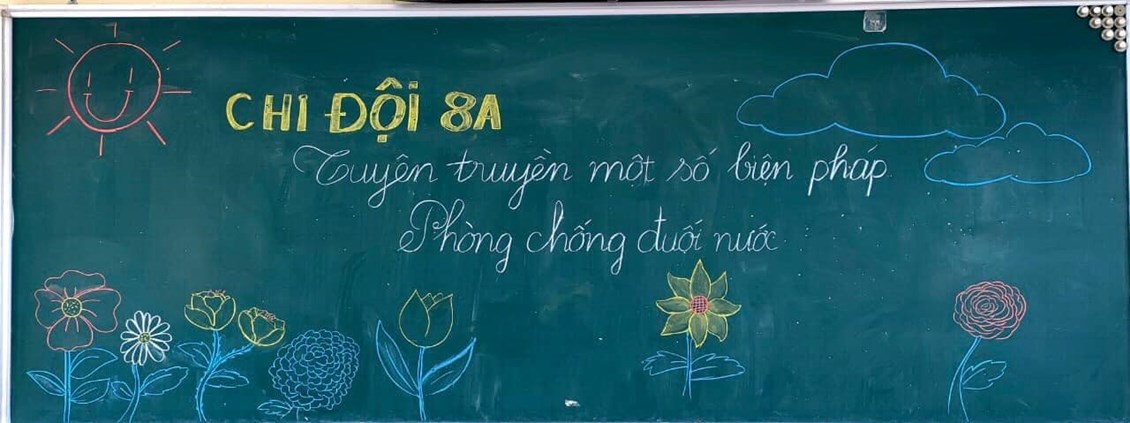 CHI ĐỘI 8A
Tuyên truyền một số biện pháp
Phòng chống đuối nước